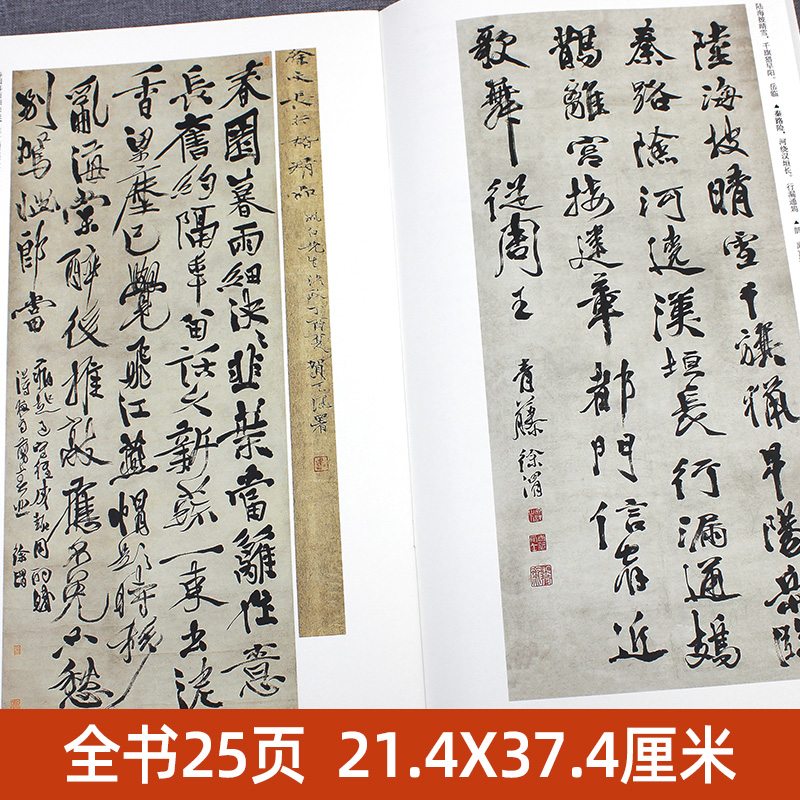 陆海披晴雪,千旗猎早阳。岳临 ▲秦路险,河绕汉垣长。行漏通鳷 ▲鹊
陸海披晴雪千旗獵早陽岳臨
秦路險河遶漢垣長行漏通鳷
鵲離宮接建章都門信宿近
歌舞從周王
青藤徐渭
春園暮雨細泱泱韭葉當籬作意
長舊約隔年留話久新蔬一束出泥
香梁塵已覺飛江燕帽影時移
亂海棠醉後推敲應不免只愁
別駕惱郎當
徐渭
全书25页 21.4X37.4厘米